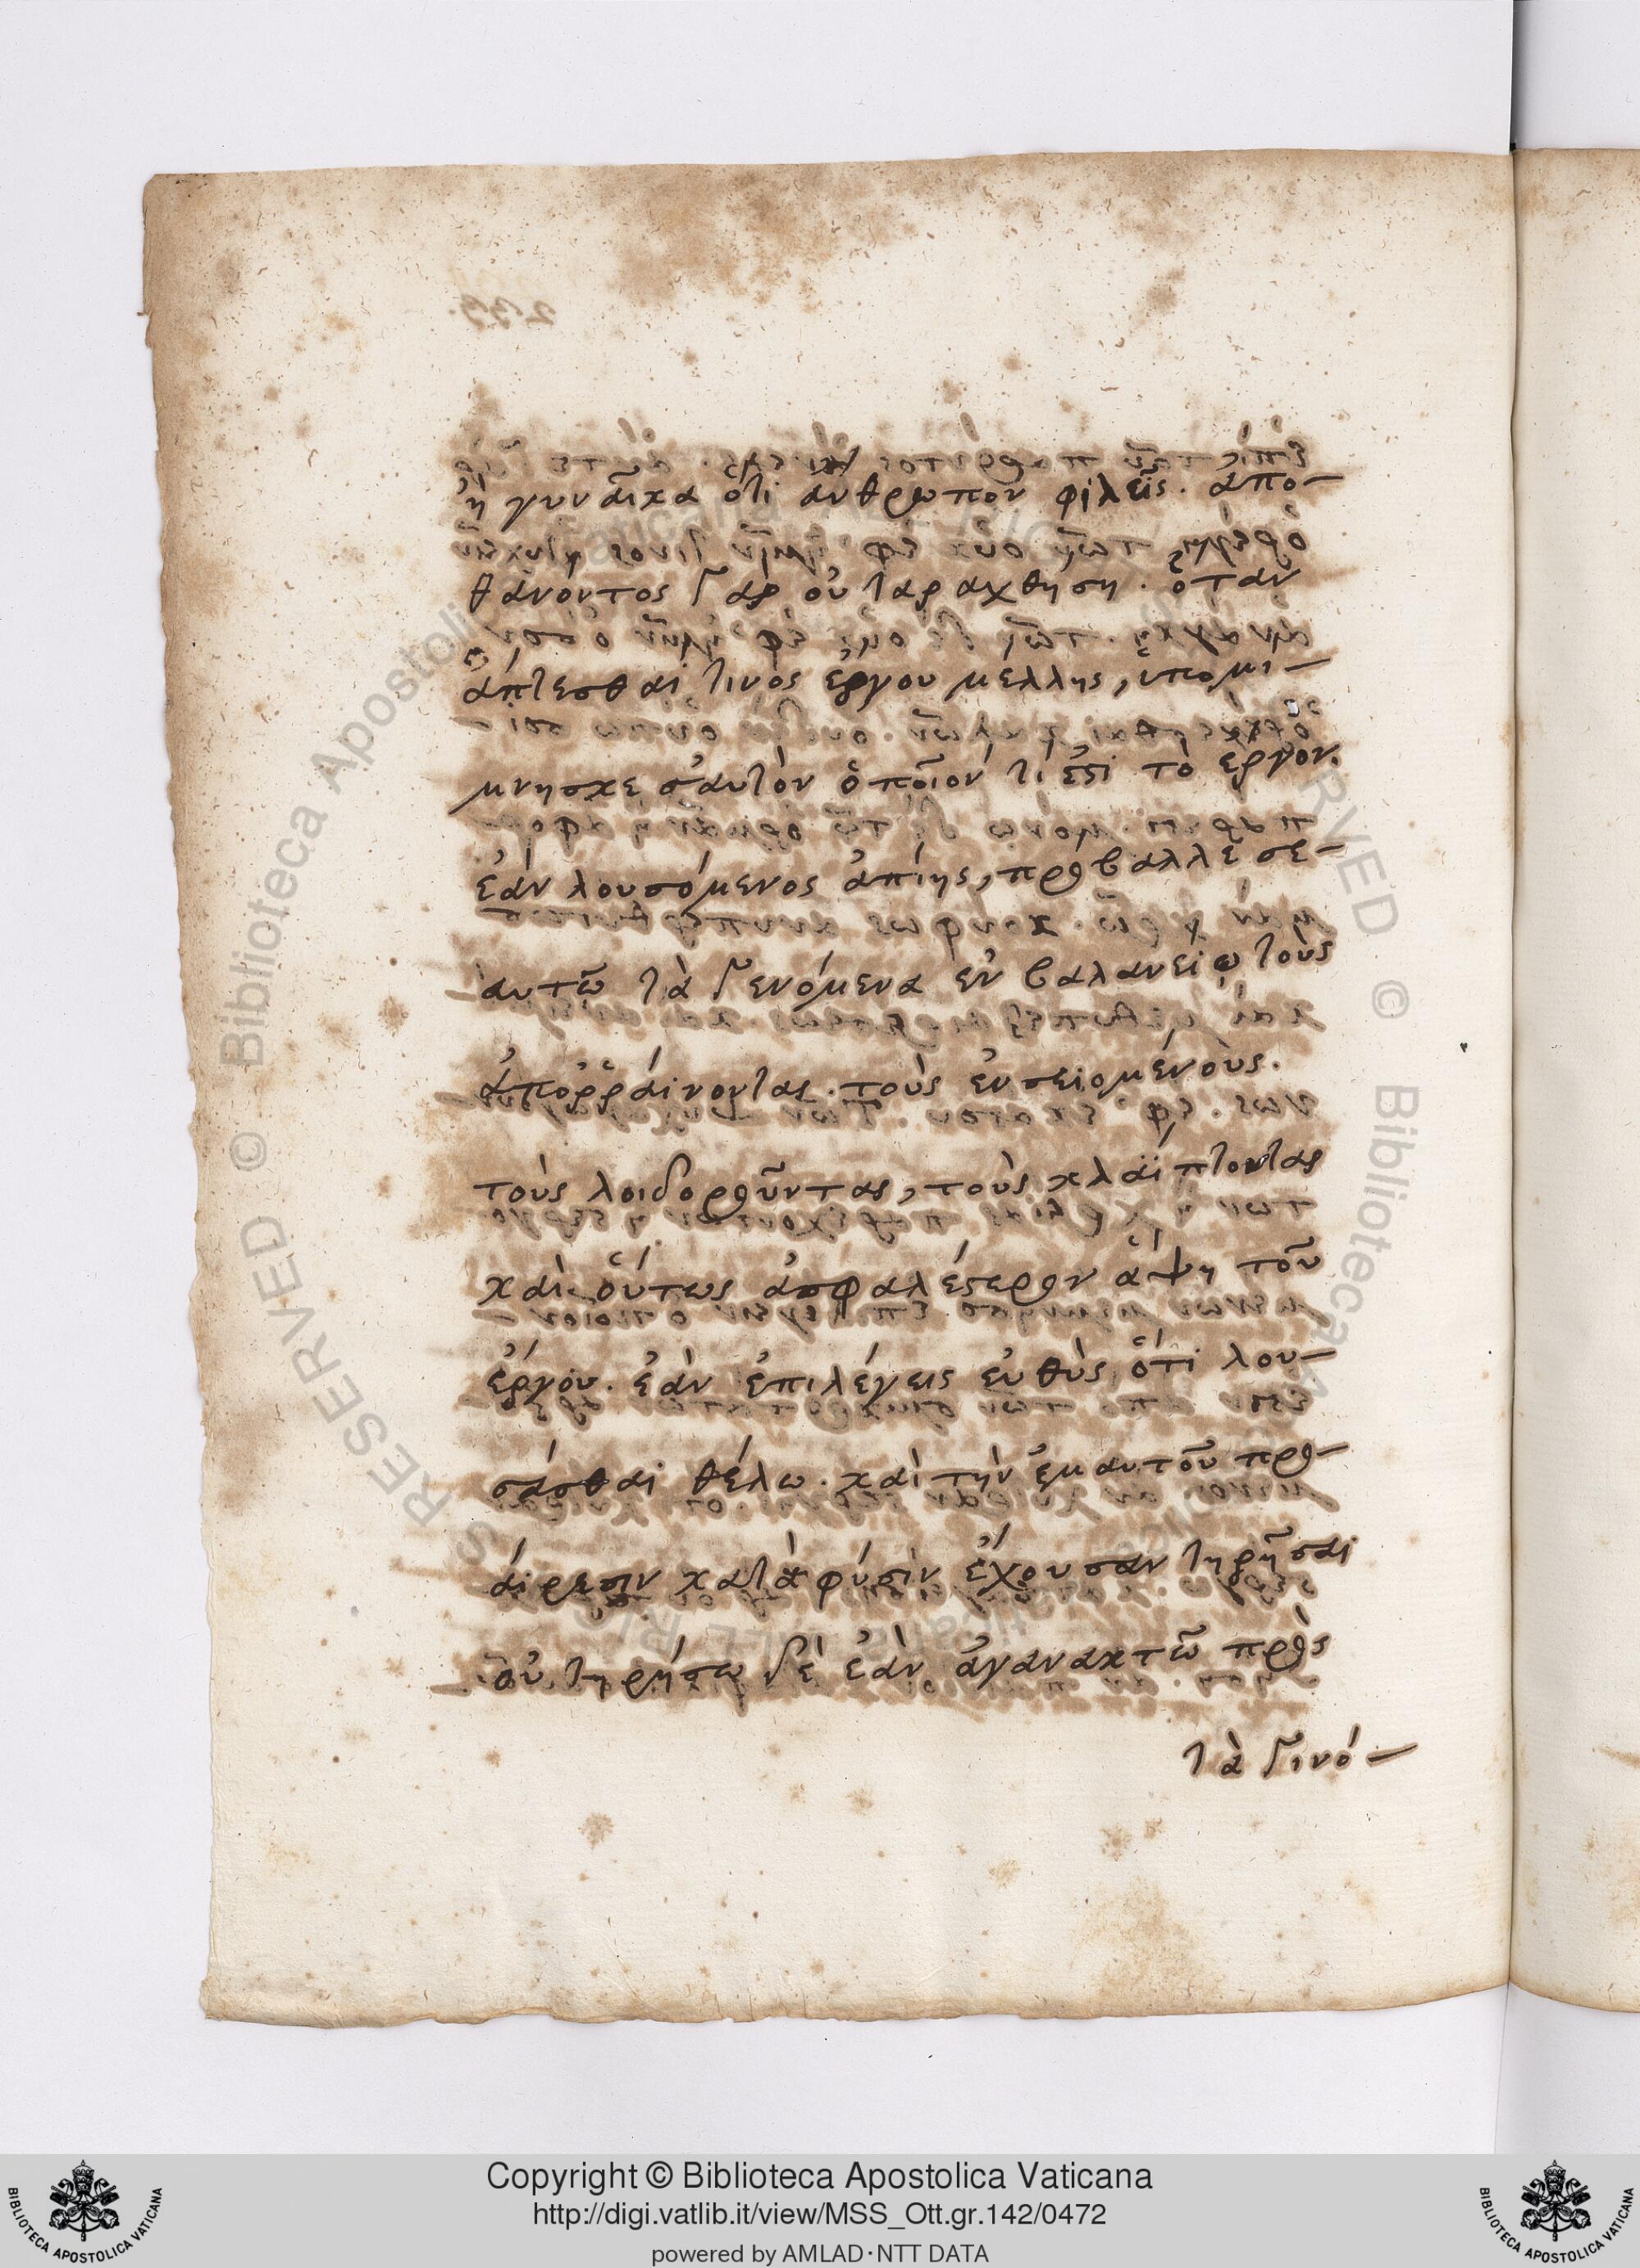 ἢ γυναῖκα ὅτι ἄνθρωπον φιλεῖς. ἀπο-
θανόντος γὰρ οὐ ταραχθήσῃ. ὅταν
ἅπτεσθαι τινὸς ἔργου μέλλῃς, ὑπομι-
μνησκε σαυτὸν ὁποῖόν τί ἐστι τὸ ἔργον.
ἐὰν λουσόμενος ἀπίῃς, πρόβαλλε σε-
αυτῶ τὰ γενόμενα ἐν βαλανείῳ τοὺς
ἀποῤῥαίνοντας. τοὺς ἐνσειομένους.
τοὺς λοιδοροῦντας, τοὺς κλάιπτοντας
καὶ οὕτως ἀσφαλέστερον ἅψη τοῦ
ἔργου. ἐὰν ἐπιλέγεις εὐθὺς ὅτι λου-
σάσθαι θέλω. καὶ τὴν ἐμαυτοῦ προ-
αίρεσιν κατὰ φύσιν ἔχουσαν τηρῆσαι
οὐ τηρήσω δὲ ἐὰν ἀγανακτῶ πρὸς
τὰ γινό-
Copyright © Biblioteca Apostolica Vaticana
http://digi.vatlib.it/view/MSS_Ott.gr.142/0472
powered by AMLAD·NTT DATA
BIBLIOTECA APOSTOLICA VATICANA
BIBLIOTECA APOSTOLICA VATICANA